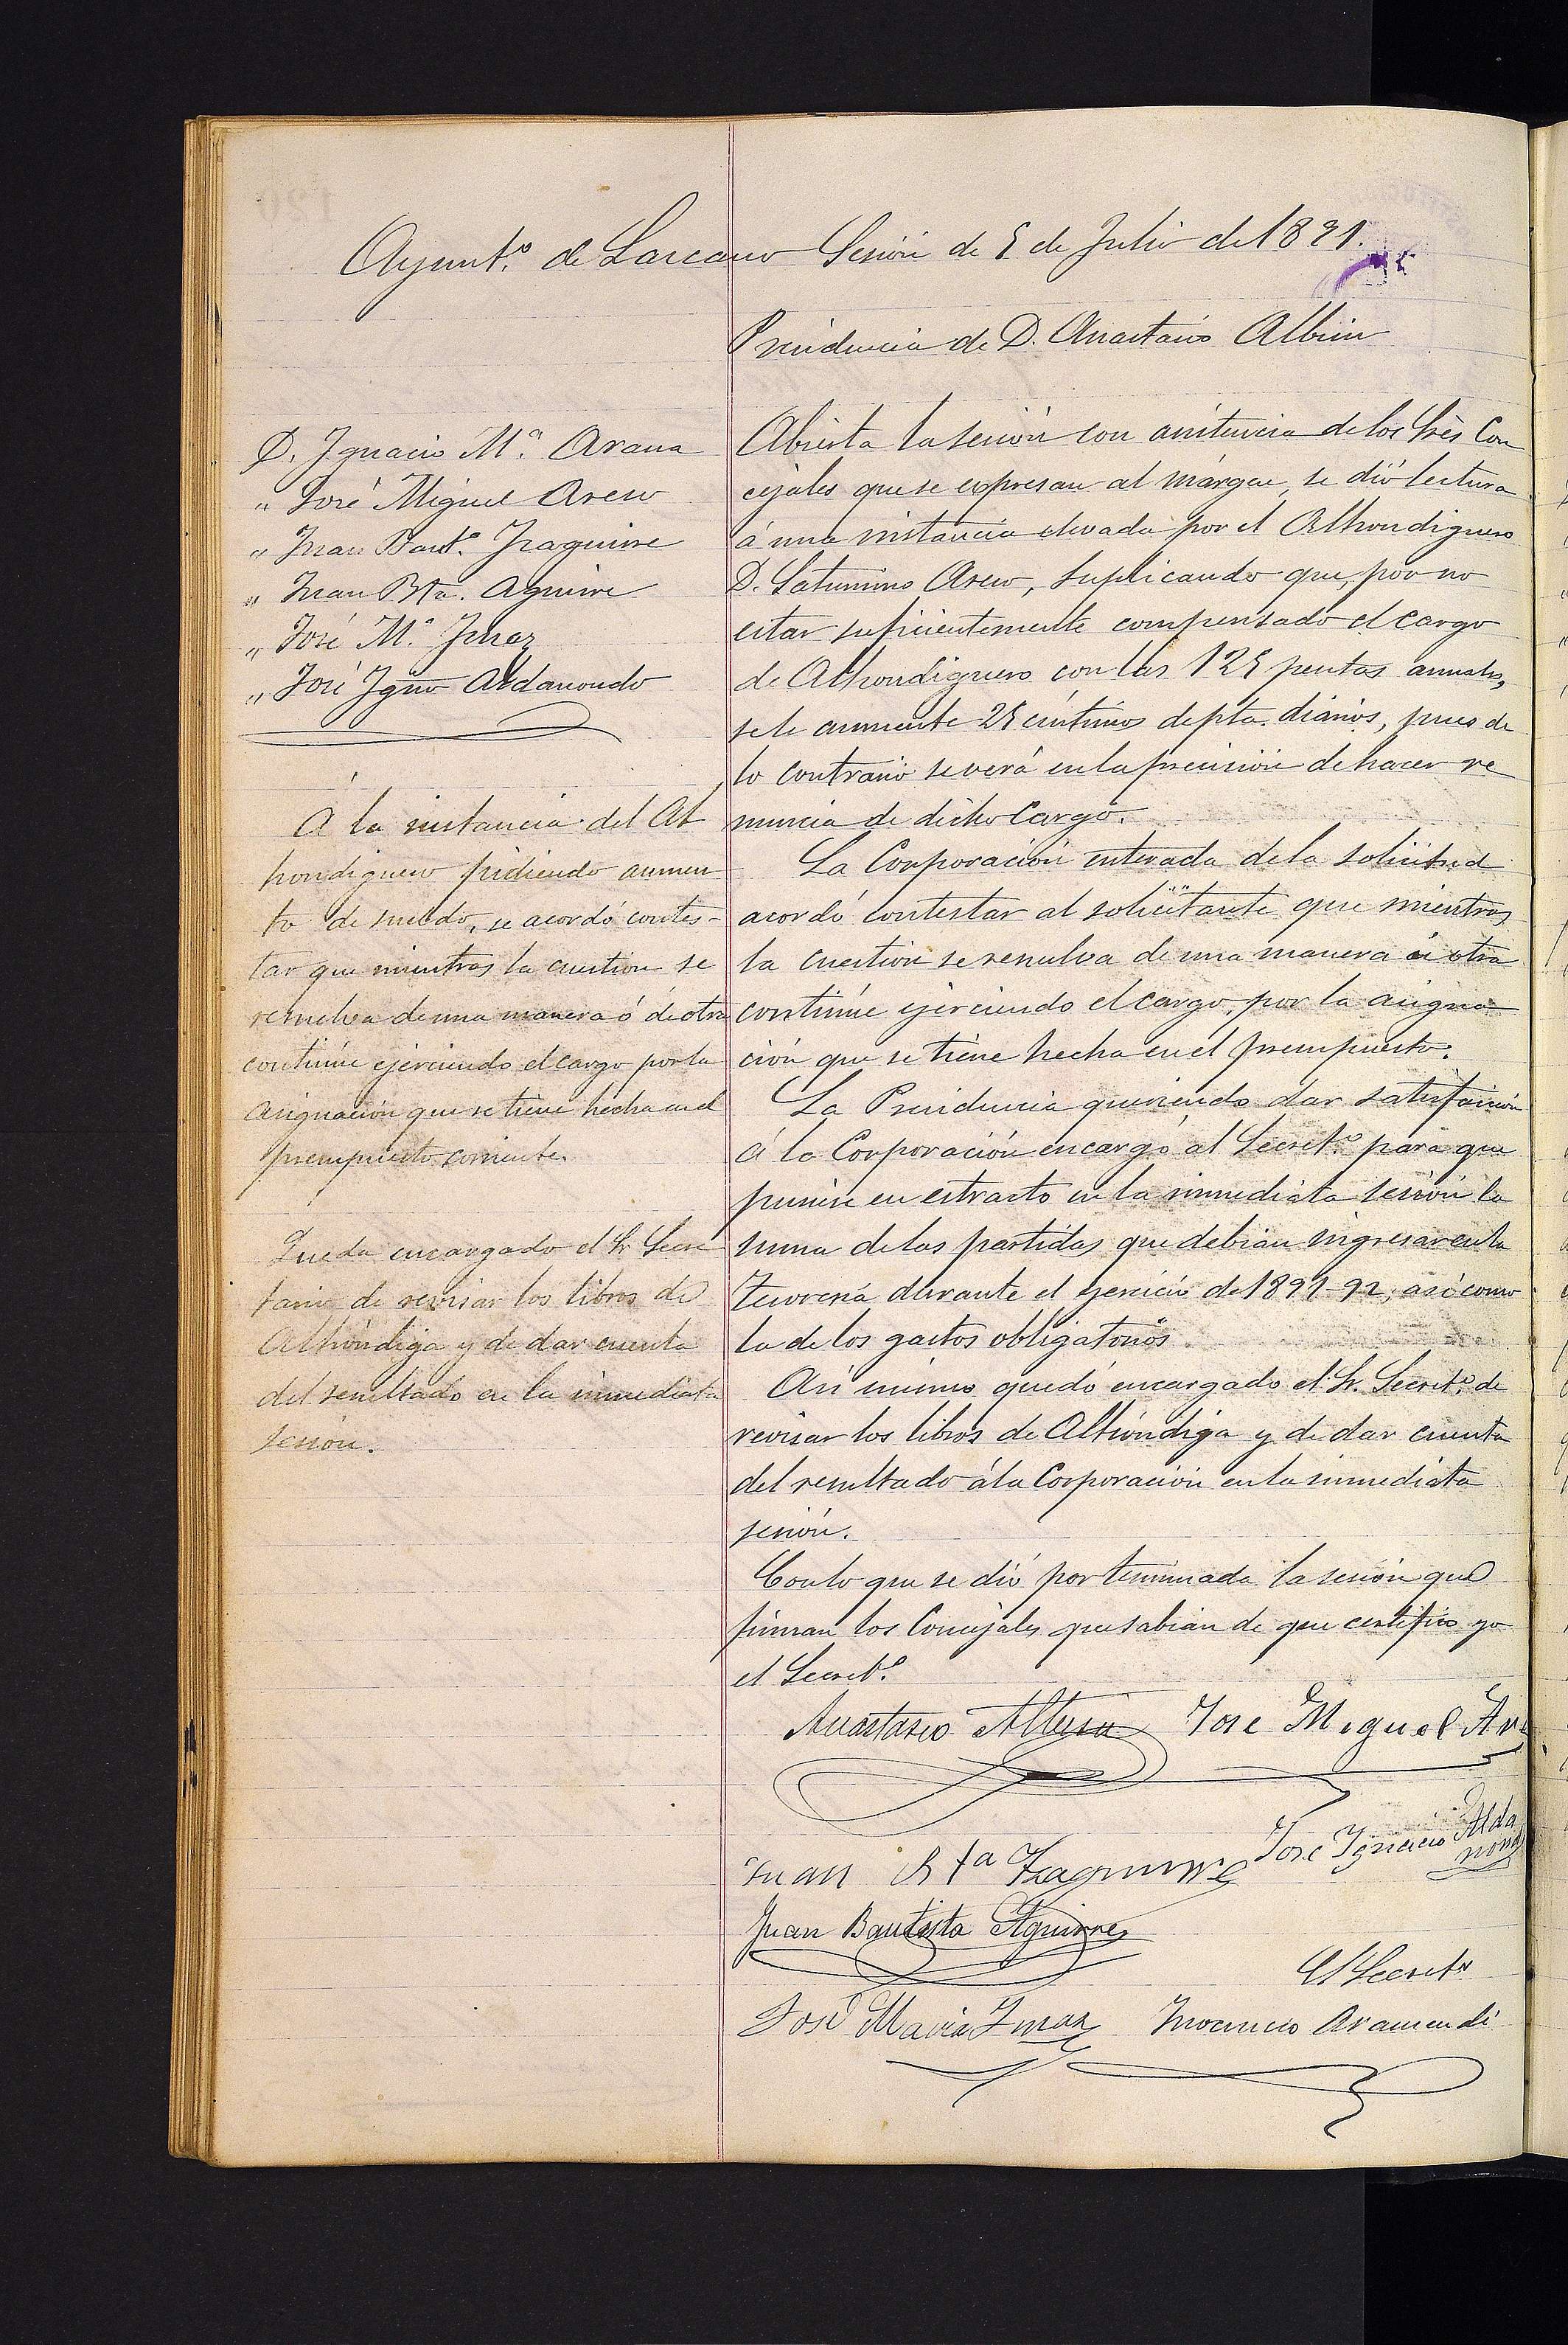 Ayunt.º de Lazcano Sesión de 5 de Julio de 1891.
Presidencia de D. Anastasio Altuna
D. Ignacio M.ª Arana
" José Miguel Areso
" Juan Baut.ª Izaguirre
" Juan Bta. Aguirre
" José M.ª Imaz
" José Ygno Aldanondo
Á la instancia del Al
hondiguero pidiendo aumen
to de sueldo, se acordó contes-
tar que mientras la cuestion se
resuelva de una manera ó de otra
continúe ejerciendo el cargo por la
asignación que se tiene hecha en el
presupuesto corriente.
Queda encargado el Sr Secre
tario de revisar los libros de
Alhóndiga y de dar cuenta
del resultado en la inmediata
sesión.
Abierta la sesión con asistencia de los Srès Con
cejales que se espresan al márgen, se dió lectura
á una instancia elevada por el Alhondiguero
D. Saturnino Areso, suplicando que, por no
estar suficientemente compensado el cargo
de Alhondiguero con las 125 pesetas anuales,
se le aumente 25 céntimos de pta. diarios, pues de
lo contrario se verá en la precisión de hacer re
nuncia de dicho cargo.
La Corporación enterada de la solicitud
acordó contestar al solicitante que mientras
la cuestion se resuelva de una manera ú otra
continúe ejerciendo el cargo, por la asigna
ción que se tiene hecha en el presupuesto.
La Presidencia queriendo dar satisfacción
á la Corporación encargó al Secret.º para que
pusiese en estracto en la inmediata sesión la
suma de las partidas que debian ingresar en la
Tesorería durante el ejercicio de 1891-92, asi como
la de los gastos obligatorios.
Asi mismo quedó encargado el Sr. Secret.º de
revisar los libros de Alhóndiga y de dar cuenta
del resultado á la Corporación en la inmediata
sesión.
Con lo que se dió por terminada la sesión que
firman los Concejales que sabian de que certifico yo
el Secret.º
Anastasio Altuna José Miguel Ar
Juan Bta Izaguirre José Ignacio Alda
nondo
Juan Bautista Aguirre
El Secret.º
José Maria Imaz Inocencio Aramendi